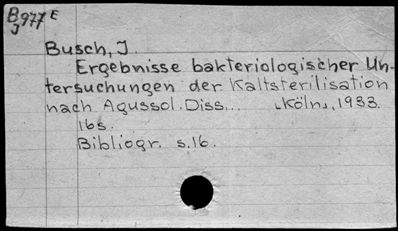 B977E
J
Busch, J.
Ergebnisse bakteriologischer Un-
tersuchungen der Kaltsterilisation
nach Agussol. Diss... ˻Köln˼, 1933.
16s.
Bibliogr. s.16.